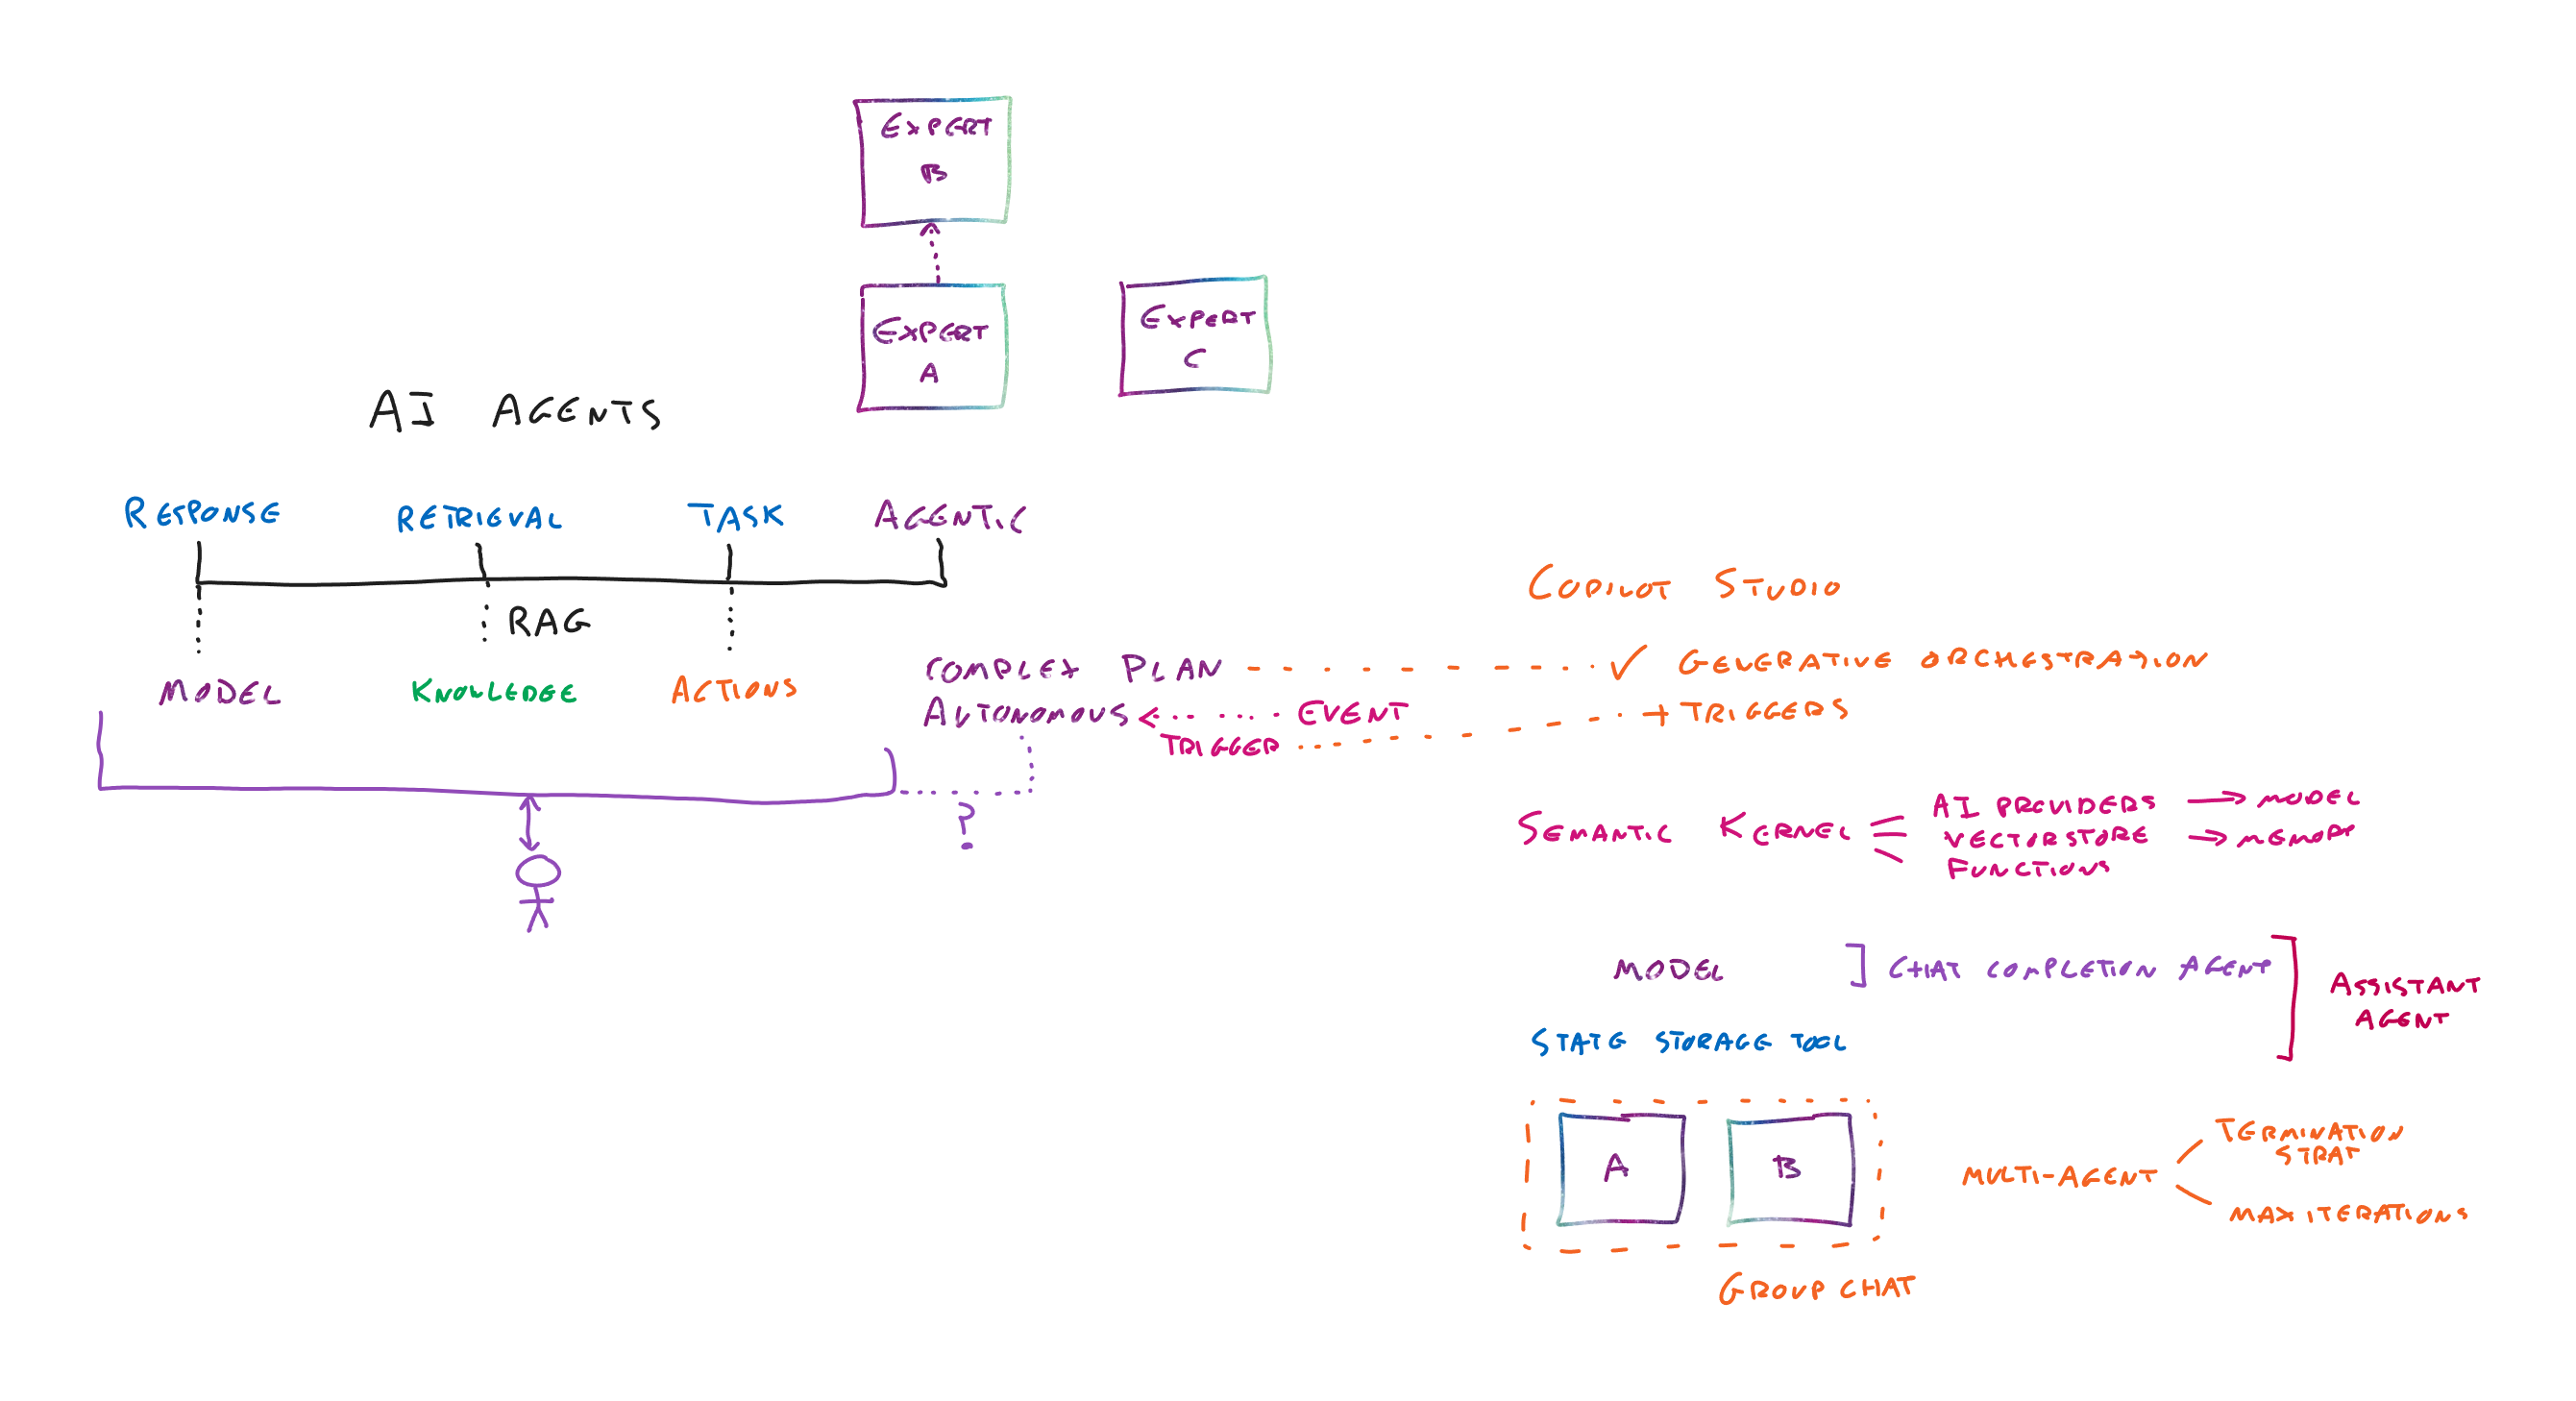 EXPERT
B
EXPERT
A
EXPERT
C
AI AGENTS
RESPONSE
RETRIEVAL
TASK
AGENTIC
RAG
MODEL
KNOWLEDGE
ACTIONS
COMPLEX PLAN
AUTONOMOUS
EVENT
TRIGGER
?
COPILOT STUDIO
✓ GENERATIVE ORCHESTRATION
+ TRIGGERS
SEMANTIC KERNEL
AI PROVIDERS → MODEL
VECTORSTORE → MEMORY
FUNCTIONS
MODEL
CHAT COMPLETION AGENT
ASSISTANT
AGENT
STATE STORAGE TOOL
A
B
GROUP CHAT
MULTI-AGENT
TERMINATION
STRAT
MAX ITERATIONS